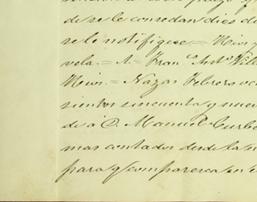 de se le concedan dies di
se le notifique = Hein y
vela = A = Fran.co Ant.o Vill
Hein = Nazar Febrero ve
sientos cincuenta y nuev
dé á D. Manuel Curbe
mas contados desde la n
para q.e comparezca en e